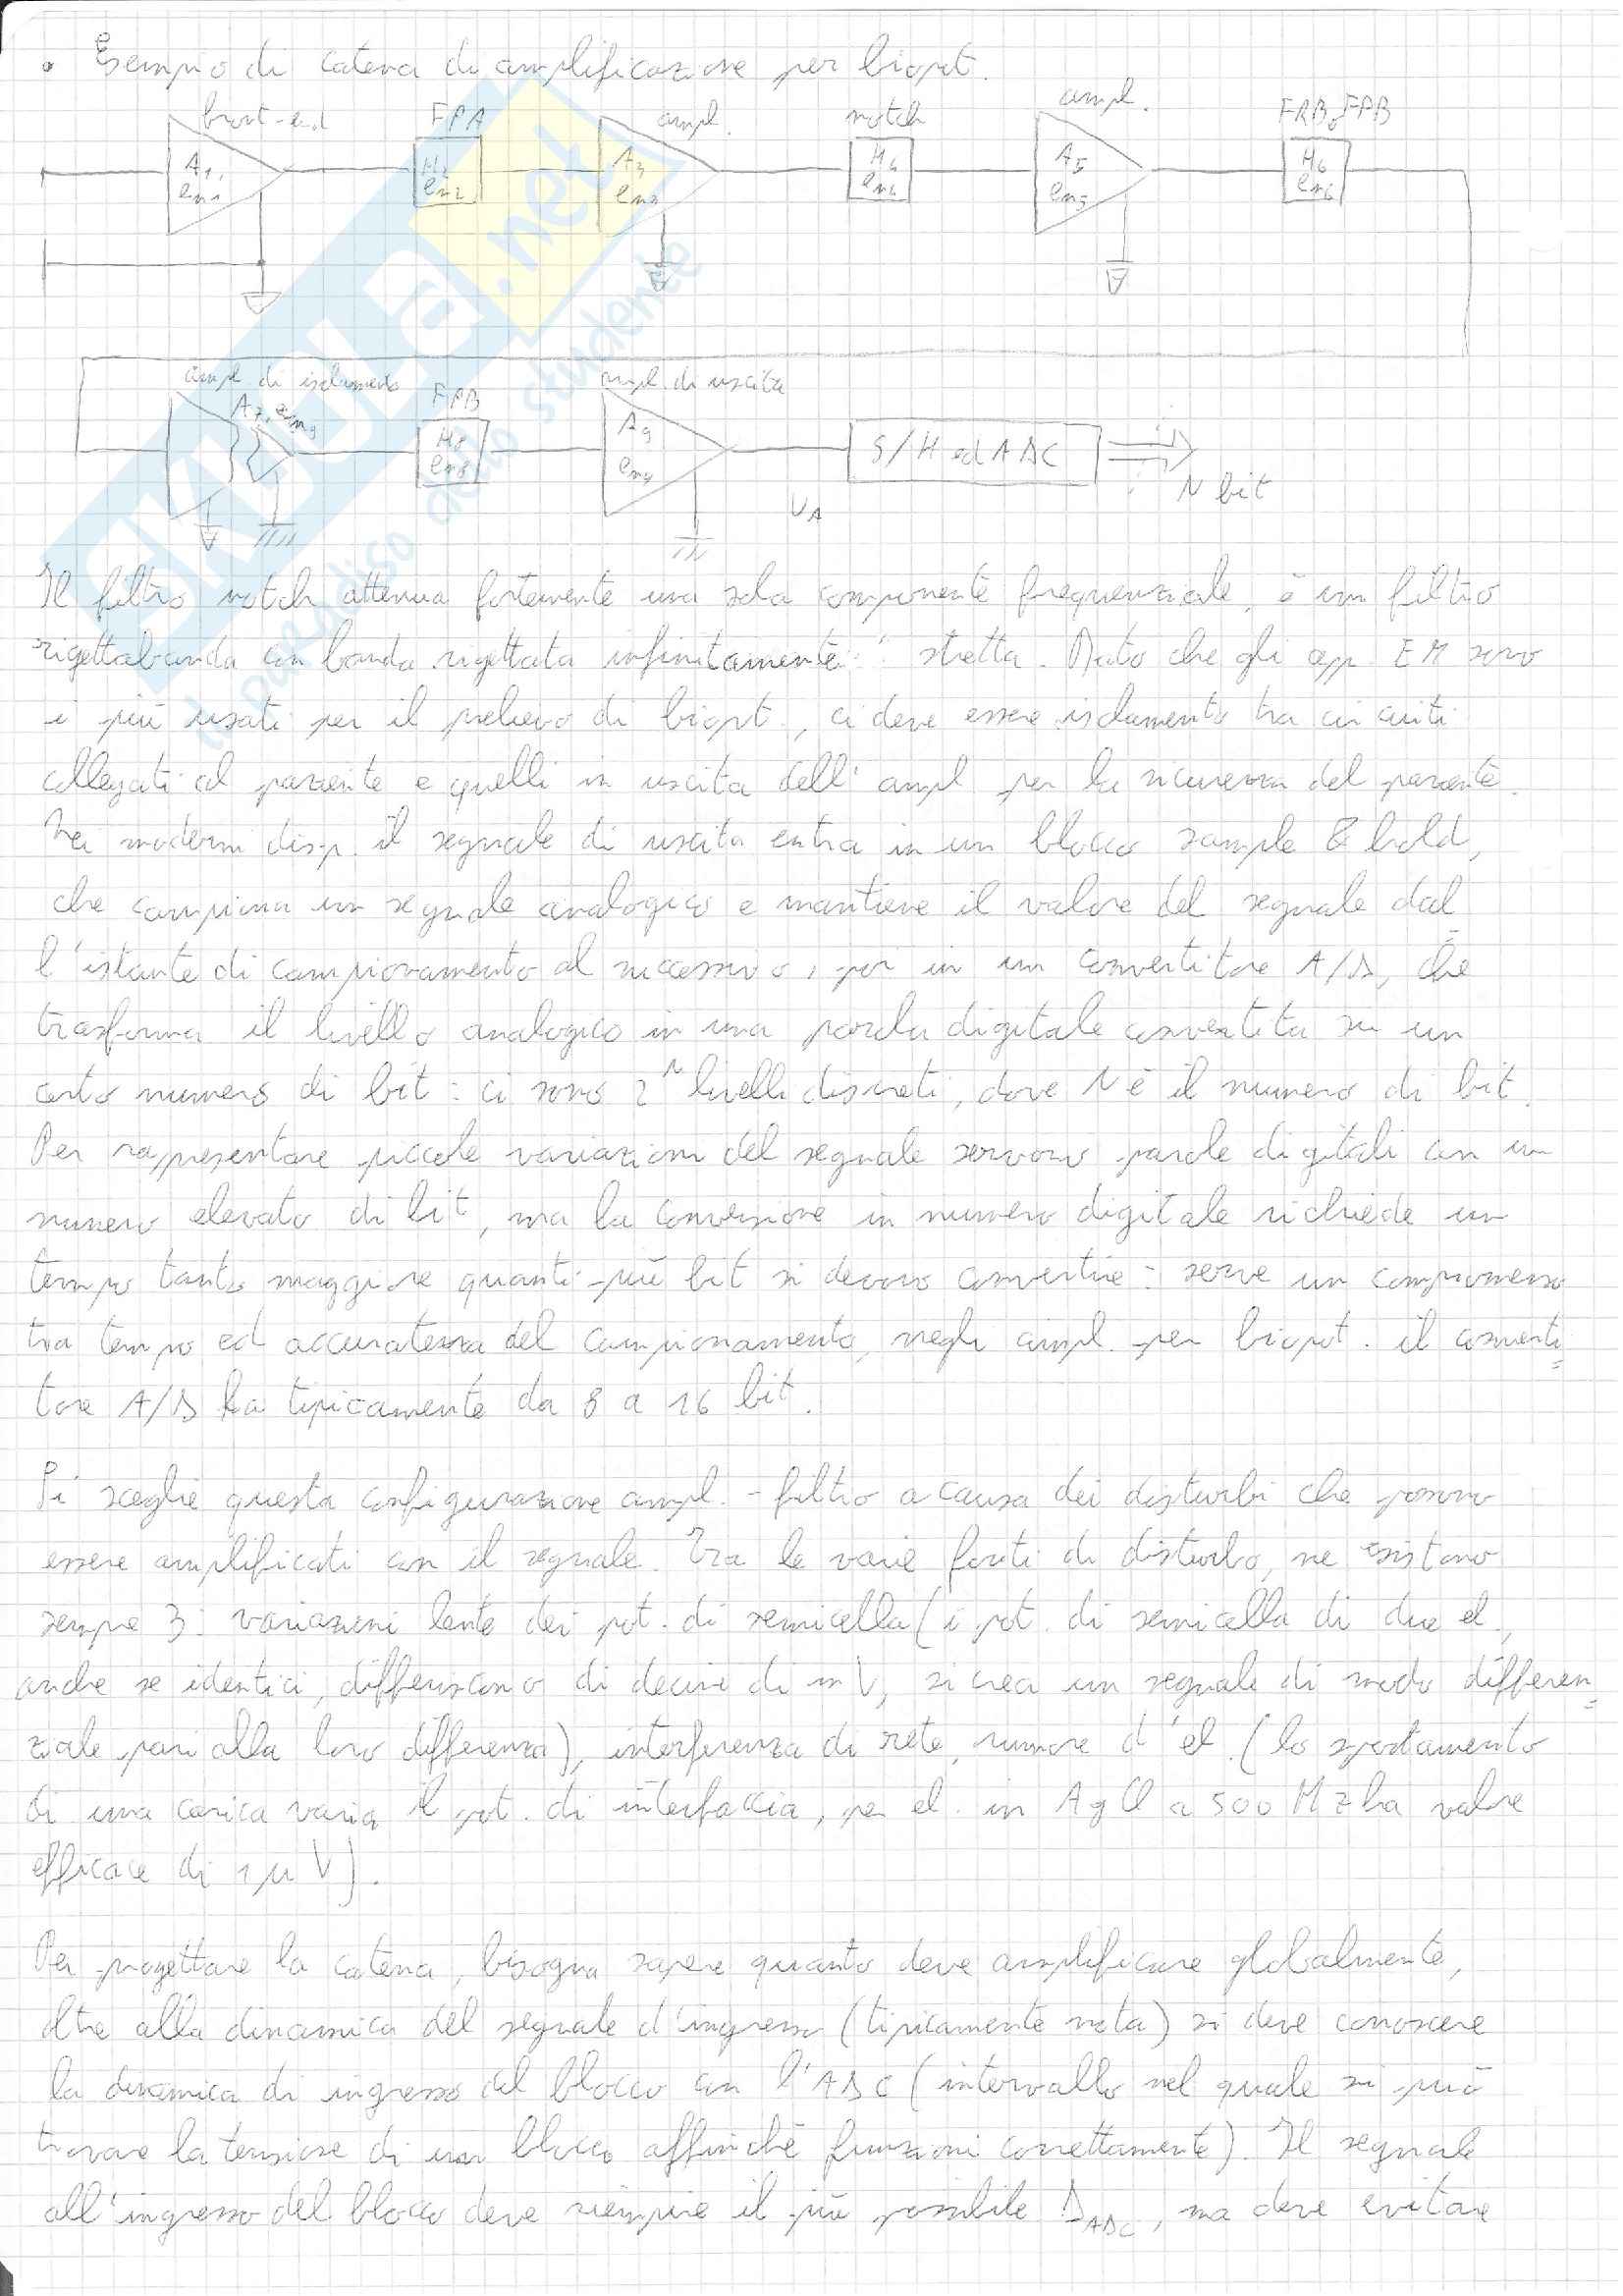 • Esempio di catena di amplificazione per biopot.
front-end FPA ampl. notch ampl. FRB o FPB
A1, en1 H2 en2 A3 en3 H4 en4 A5 en5 H6 en6
ampl di isolamento FPB ampl. di uscita
A7, en7 H8 en8 A9 en9 S/H ed ADC N bit
VA
SKUOLA.net
il paradiso dello studente
Il filtro notch attenua fortemente una sola componente frequenziale, è un filtro
rigettabanda con banda rigettata "infinitamente" stretta. Dato che gli app. EM sono
i più usati per il prelievo di biopot., ci deve essere isolamento tra circuiti
collegati al paziente e quelli in uscita dell'ampl per la sicurezza del paziente.
Nei moderni disp. il segnale di uscita entra in un blocco sample & hold,
che campiona un segnale analogico e mantiene il valore del segnale dal
l'istante di campionamento al successivo, poi in un convertitore A/D, che
trasforma il livello analogico in una parola digitale convertita su un
certo numero di bit: ci sono 2^N livelli discreti, dove N è il numero di bit.
Per rappresentare piccole variazioni del segnale servono parole digitali con un
numero elevato di bit, ma la conversione in numero digitale richiede un
tempo tanto maggiore quanti più bit si devono convertire: serve un compromesso
tra tempo ed accuratezza del campionamento, negli ampl. per biopot. il converti=
tore A/D ha tipicamente da 8 a 16 bit.
Si sceglie questa configurazione ampl. - filtro a causa dei disturbi che possono
essere amplificati con il segnale. Tra le varie fonti di disturbo, ne esistono
sempre 3: variazioni lente dei pot. di semicella (i pot. di semicella di due el.,
anche se identici, differiscono di decine di mV, si crea un segnale di modo differen=
ziale pari alla loro differenza), interferenza di rete, rumore d'el. (lo spostamento
di una carica varia il pot. di interfaccia, per el. in AgCl a 500 Hz ha valore
efficace di 1 μV).
Per progettare la catena, bisogna sapere quanto deve amplificare globalmente,
oltre alla dinamica del segnale d'ingresso (tipicamente nota) si deve conoscere
la dinamica di ingresso del blocco con l'ADC (intervallo nel quale si può
trovare la tensione di un blocco affinchè funzioni correttamente). Il segnale
all'ingresso del blocco deve riempire il più possibile D_ADC, ma deve evitare